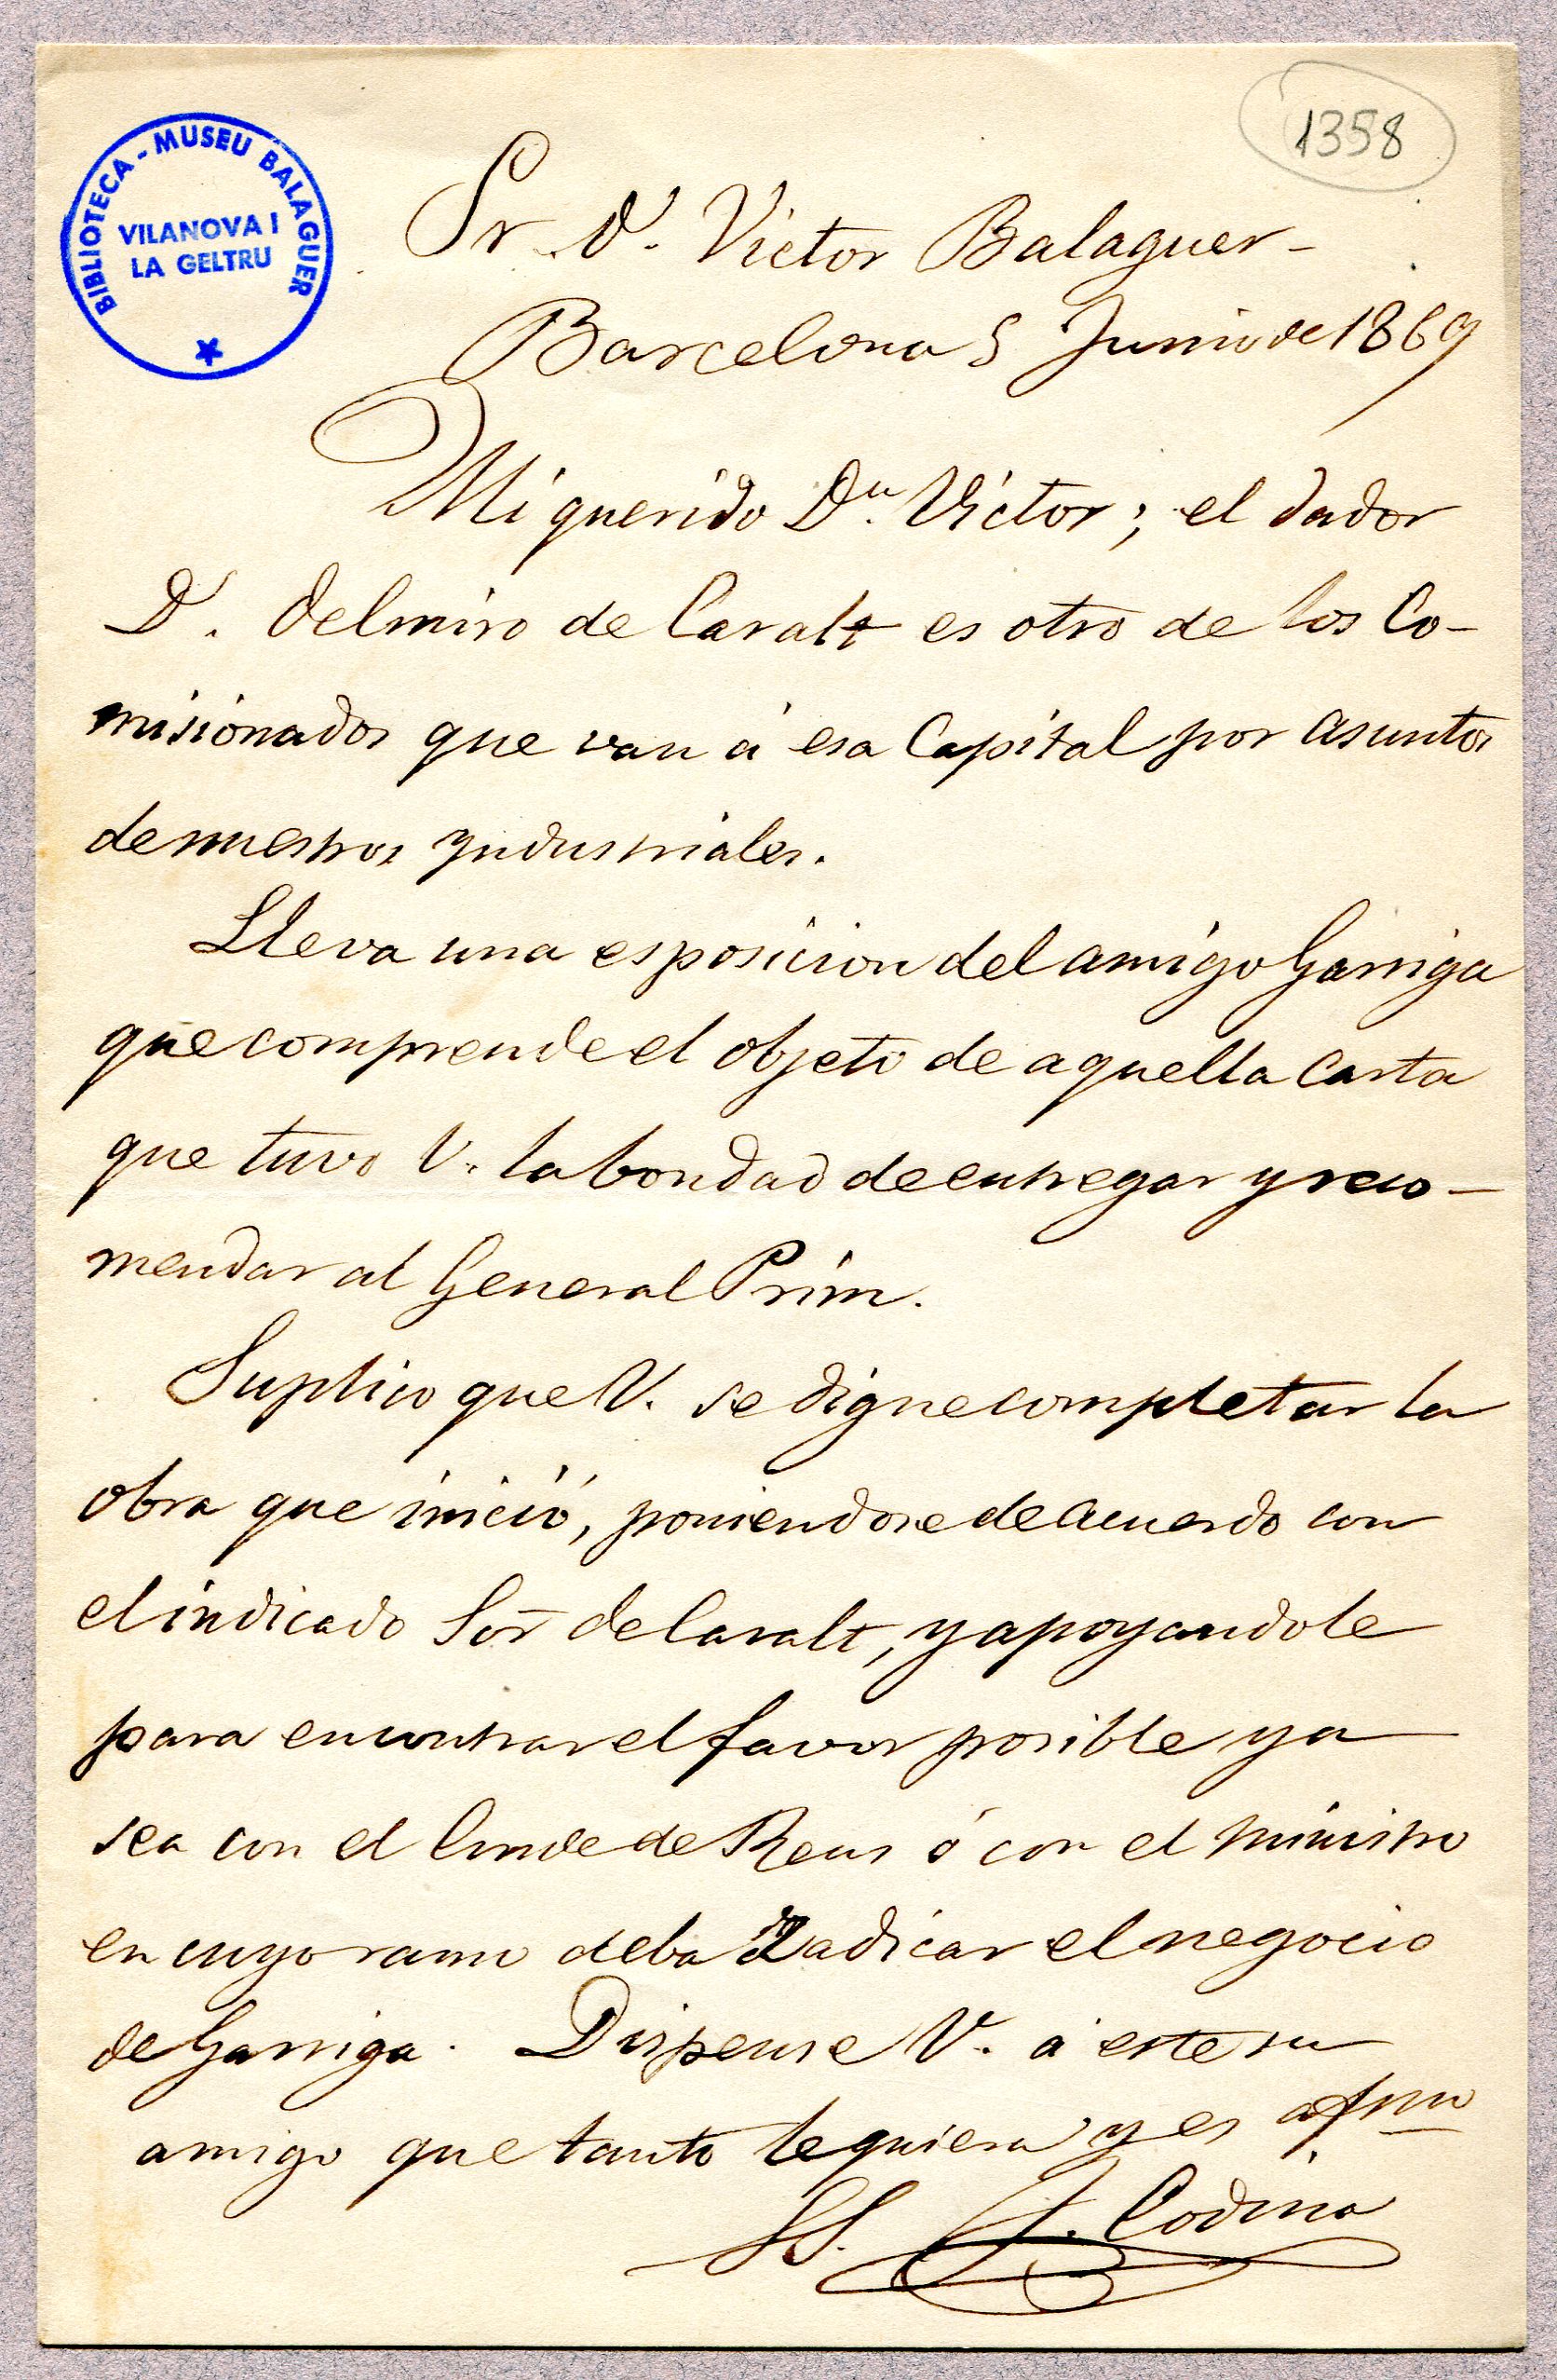 1358
BIBLIOTECA - MUSEU BALAGUER
VILANOVA I
LA GELTRU
Sr. D. Victor Balaguer -
Barcelona 5 Junio de 1869
Mi querido Dn. Victor; el dador
D. Delmiro de Caralt es otro de los Co-
misionados que van á esa Capital por asuntos
de nuestros Yndustriales.
Lleva una esposicion del amigo Garriga
que comprende el objeto de aquella carta
que tuvo V. la bondad de entregar y reco-
mendar al General Prim.
Suplico que V. se digne completar la
obra que inició, poniendose de acuerdo con
el indicado Sor de Caralt, y apoyandole
para encontrar el favor posible ya
sea con el Conde de Reus ó con el ministro
en cuyo ramo deba radicar el negocio
de Garriga. Dispense V. á este su
amigo que tanto le quiere y es afmo
SS. J. Codina